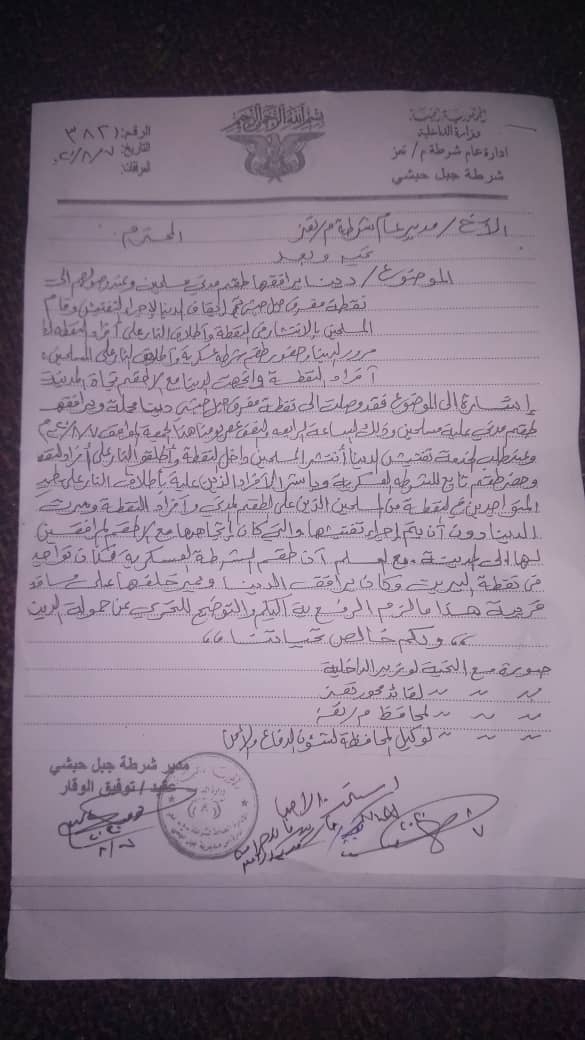 الجمهورية اليمنية
وزارة الداخلية
ادارة عام شرطة م/ تعز
شرطة جبل حبشي
بسم الله الرحمن الرحيم
الرقم: ٣٨٢١
التاريخ: ٨/٧
المرفقات:
الأخ/ مدير عام شرطة م/ تعز المحترم
تحية وبعد
الموضوع/ دينا يرافقها طقم مدني مسلحين وعند وصولهم الى
نقطة مفرق جبل حبشي تم ايقاف الدينا لإجراء التفتيش وقام
المسلحين بالانتشار في النقطة واطلاق النار على أفراد النقطة
مرور الدينا وحضور طقم شرطة عسكرية واطلاق النار على المسلحين
أفراد النقطة واتجهت الدينا مع الطقم تجاة المدينة
إشارة الى الموضوع فقد وصلت الى نقطة مفرق جبل حبشي دينا محملة ويرافقها
طقم مدني علية مسلحين وذلك الساعة الرابعة والنصف عصر يومنا هذا الجمعة الموافق ٨/٧/٢٠٢٠م
وعند طلب الخدمة تفتيش الدينا أنتشر المسلحين داخل النقطة وأطلقوا النار على أفراد النقطة
وحضر طقم تابع للشرطة العسكرية وباشر الأفراد الذين علية بأطلاق النار على
المتواجدين في النقطة من المسلحين الذين على الطقم المدني وأفراد النقطة ومرت
الدينا دون أن يتم إجراء تفتيشها والتي كان إتجاهها مع الطقم المرافقين
لها الى المدينة. مع العلم أن طقم الشرطة العسكرية كان تواجد
في نقطة البيرين وكان يرافق الدينا ويسير خلفها على مسافة
قريبة هذا مالزم الرفع به اليكم والتوضيح للتحري عن حمولة الدينا
،، ولكم خالص تحياتنا ،،
صورة مع التحية لوزير الداخلية
〃 〃 〃 لقائد محور تعز
〃 〃 〃 لمحافظ م/ تعز
〃 〃 〃 لوكيل المحافظة لشئون الدفاع والأمن
مدير شرطة جبل حبشي
عقيد / توفيق الوقار